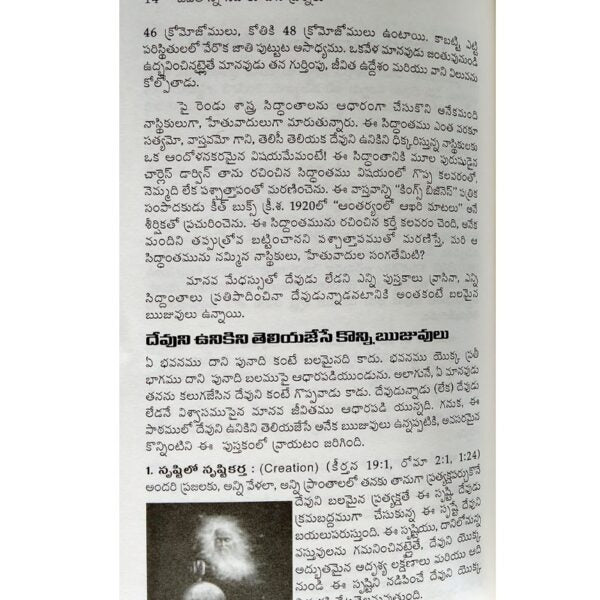 46 క్రోమోజోములు, కోతికి 48 క్రోమోజోములు ఉంటాయి. కాబట్టి ఎట్టి
పరిస్థితులలో వేరొక జాతి పుట్టుట అసాధ్యము. ఒకవేళ మానవుడు జంతువునుండి
ఉద్భవించినట్లైతే మానవుడు తన గుర్తింపు, జీవిత ఉద్దేశం మరియు వాని విలువను
కోల్పోతాడు.
పై రెండు శాస్త్ర సిద్ధాంతాలను ఆధారంగా చేసుకొని అనేకమంది
నాస్తికులుగా, హేతువాదులుగా మారుతున్నారు. ఈ సిద్ధాంతము ఎంత వరకూ
సత్యమో, వాస్తవమో గాని, తెలిసీ తెలియక దేవుని ఉనికిని ధిక్కరిస్తున్న నాస్తికులకు
ఒక ఆందోళనకరమైన విషయమేమంటే! ఈ సిద్ధాంతానికి మూల పురుషుడైన
చార్లెస్ డార్విన్ తాను రచించిన సిద్ధాంతము విషయంలో గొప్ప కలవరంతో,
నెమ్మది లేక పశ్చాత్తాపంతో మరణించెను. ఈ వాస్తవాన్ని "కింగ్స్ బిజినెస్" పత్రిక
సంపాదకుడు కీత్ బుక్స్ క్రీ.శ. 1920లో "ఆంతర్యంలో ఆఖరి మాటలు" అనే
శీర్షికతో ప్రచురించెను. ఈ సిద్ధాంతమును రచించిన కర్తే కలవరం చెంది, అనేక
మందిని తప్పుత్రోవ బట్టించానని పశ్చాత్తాపముతో మరణిస్తే, మరి ఆ
సిద్ధాంతమును నమ్మిన నాస్తికులు, హేతువాదుల సంగతేమిటి?
మానవ మేధస్సుతో దేవుడు లేడని ఎన్ని పుస్తకాలు వ్రాసినా, ఎన్ని
సిద్దాంతాలు ప్రతిపాదించినా దేవుడున్నాడనటానికి అంతకంటే బలమైన
ఋజువులు ఉన్నాయి.
దేవుని ఉనికిని తెలియజేసే కొన్ని ఋజువులు
ఏ భవనము దాని పునాది కంటే బలమైనది కాదు. భవనము యొక్క ప్రతీ
భాగము దాని పునాది బలముపై ఆధారపడియుండును. అలాగునే, ఏ మానవుడు
తనను కలుగజేసిన దేవుని కంటే గొప్పవాడు కాడు. దేవుడున్నాడు (లేక) దేవుడు
లేడనే విశ్వాసముపైన మానవ జీవితము ఆధారపడి యున్నది. గనుక, ఈ
పాఠములో దేవుని ఉనికిని తెలియజేసే అనేక ఋజువులు ఉన్నప్పటికి, అవసరమైన
కొన్నింటిని ఈ పుస్తకంలో వ్రాయటం జరిగింది.
1. సృష్టిలో సృష్టికర్త : (Creation) (కీర్తన 19:1, రోమా 2:1, 1:24)
అందరి ప్రజలకు, అన్ని వేళలా, అన్ని ప్రాంతాలలో తనకు తాముగా ప్రత్యక్షపర్చుకొనే
దేవుని బలమైన ప్రత్యక్షతే ఈ సృష్టి. దేవుడు
క్రమబద్ధముగా చేసుకున్న ఈ సృష్టే దేవుని
బయలుపరుస్తుంది. ఈ సృష్టియు, దానిలోనున్న
వస్తువులను గమనించినట్లైతే, దేవుని యొక్క
అద్భుతమైన అదృశ్య లక్షణాలు మరియు ఆది
నుండి ఈ సృష్టిని నడిపించే దేవుని యొక్క